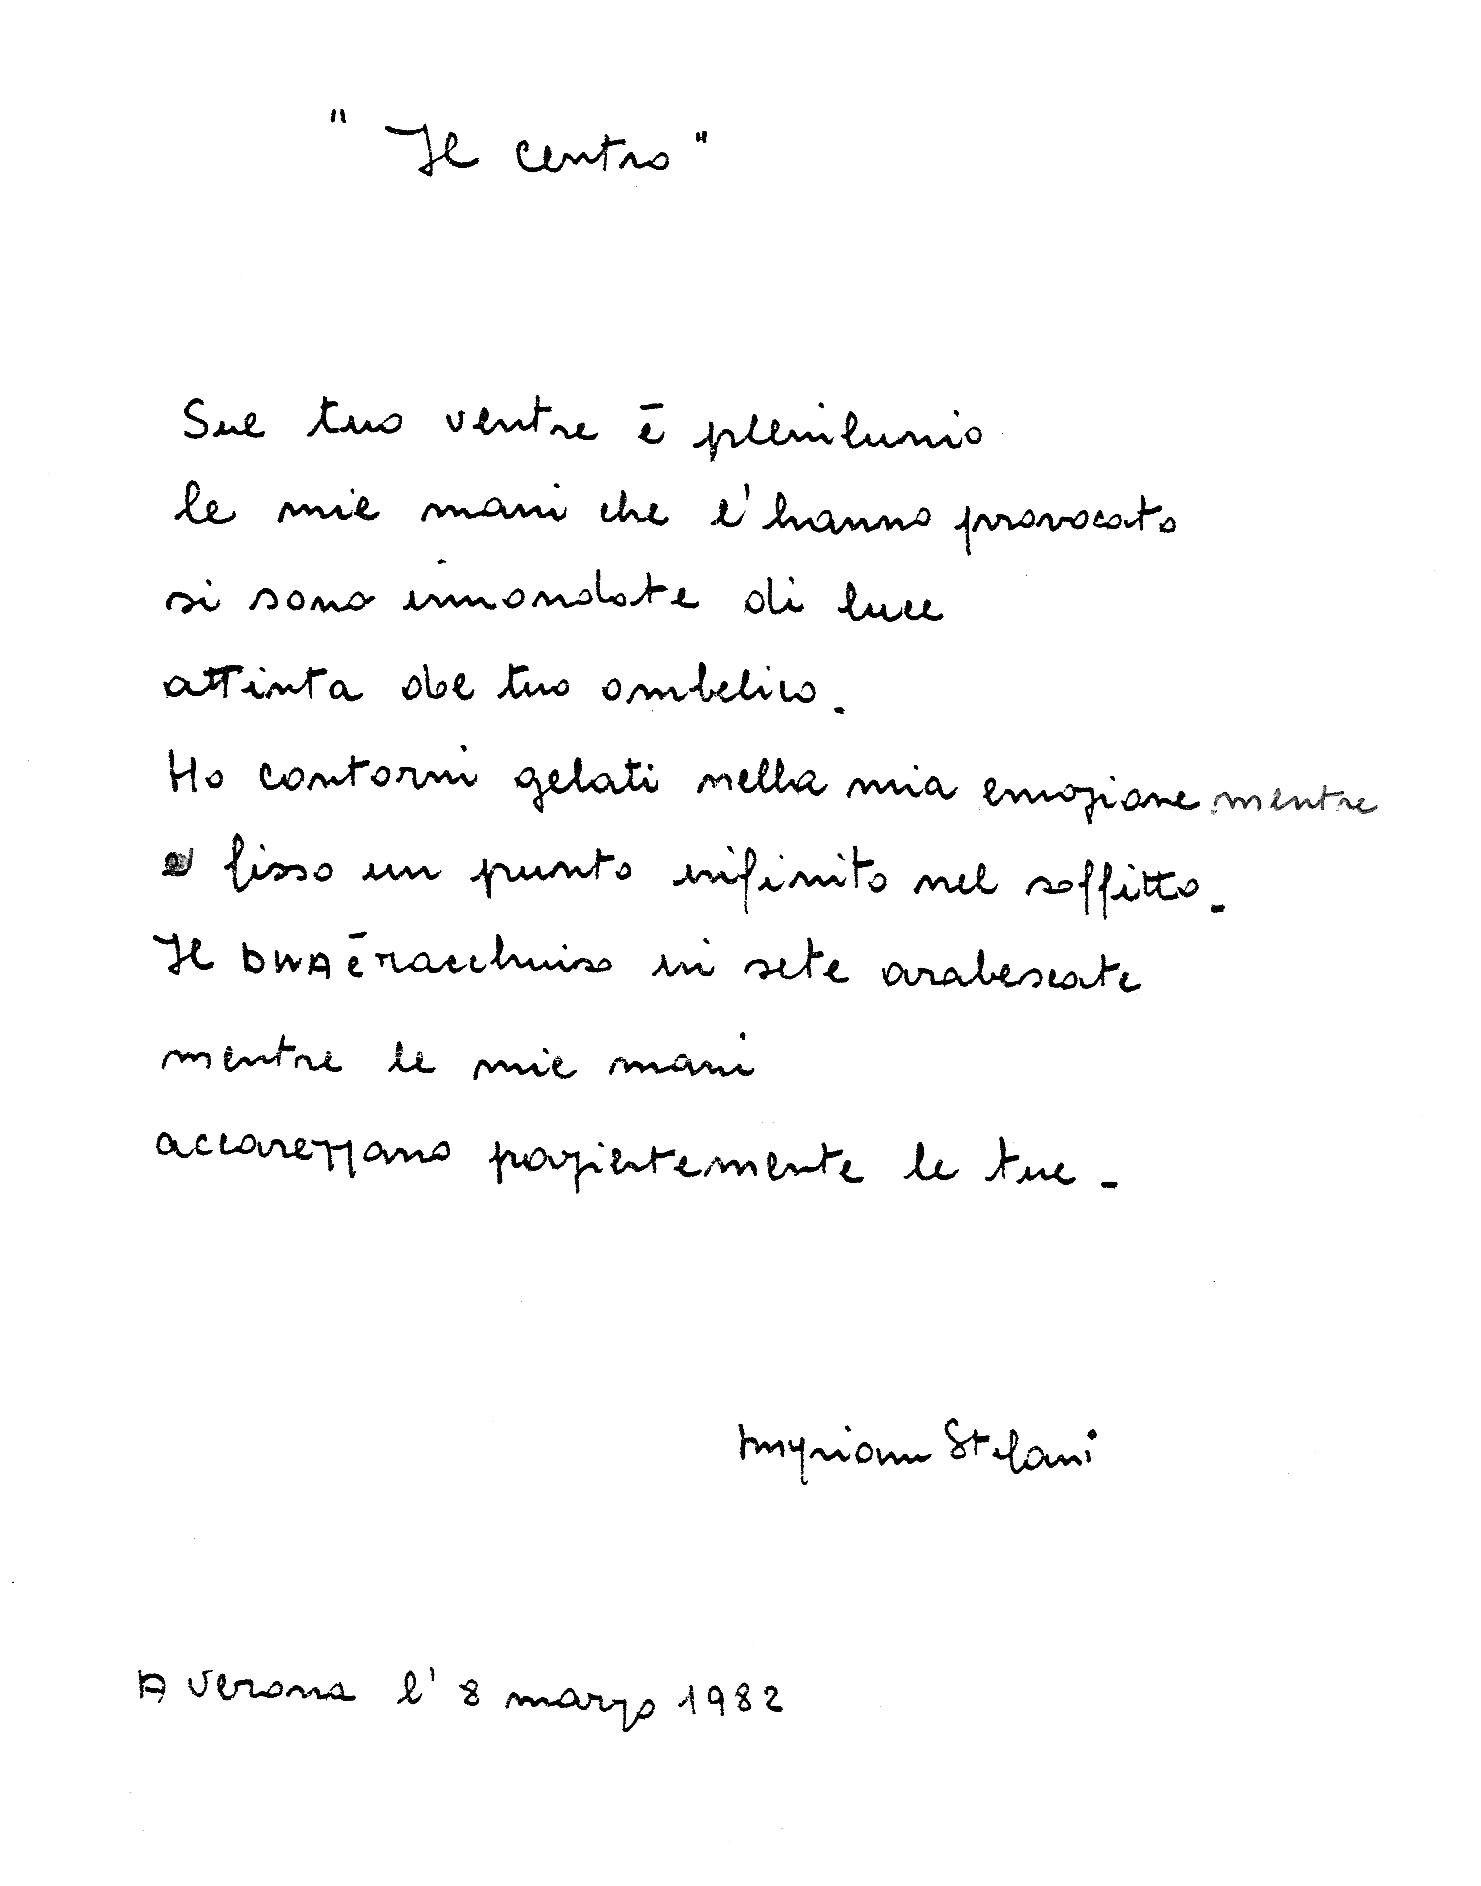 "Il centro"
Sul tuo ventre è plenilunio
le mie mani che l'hanno provocato
si sono innondate di luce
attinta dal tuo ombelico.
Ho contorni gelati nella mia emozione mentre
fisso un punto infinito nel soffitto.
Il DNA è racchiuso in sete arabescate
mentre le mie mani
accarezzano pazientemente le tue.
Myriam Stefani
A Verona l'8 marzo 1982